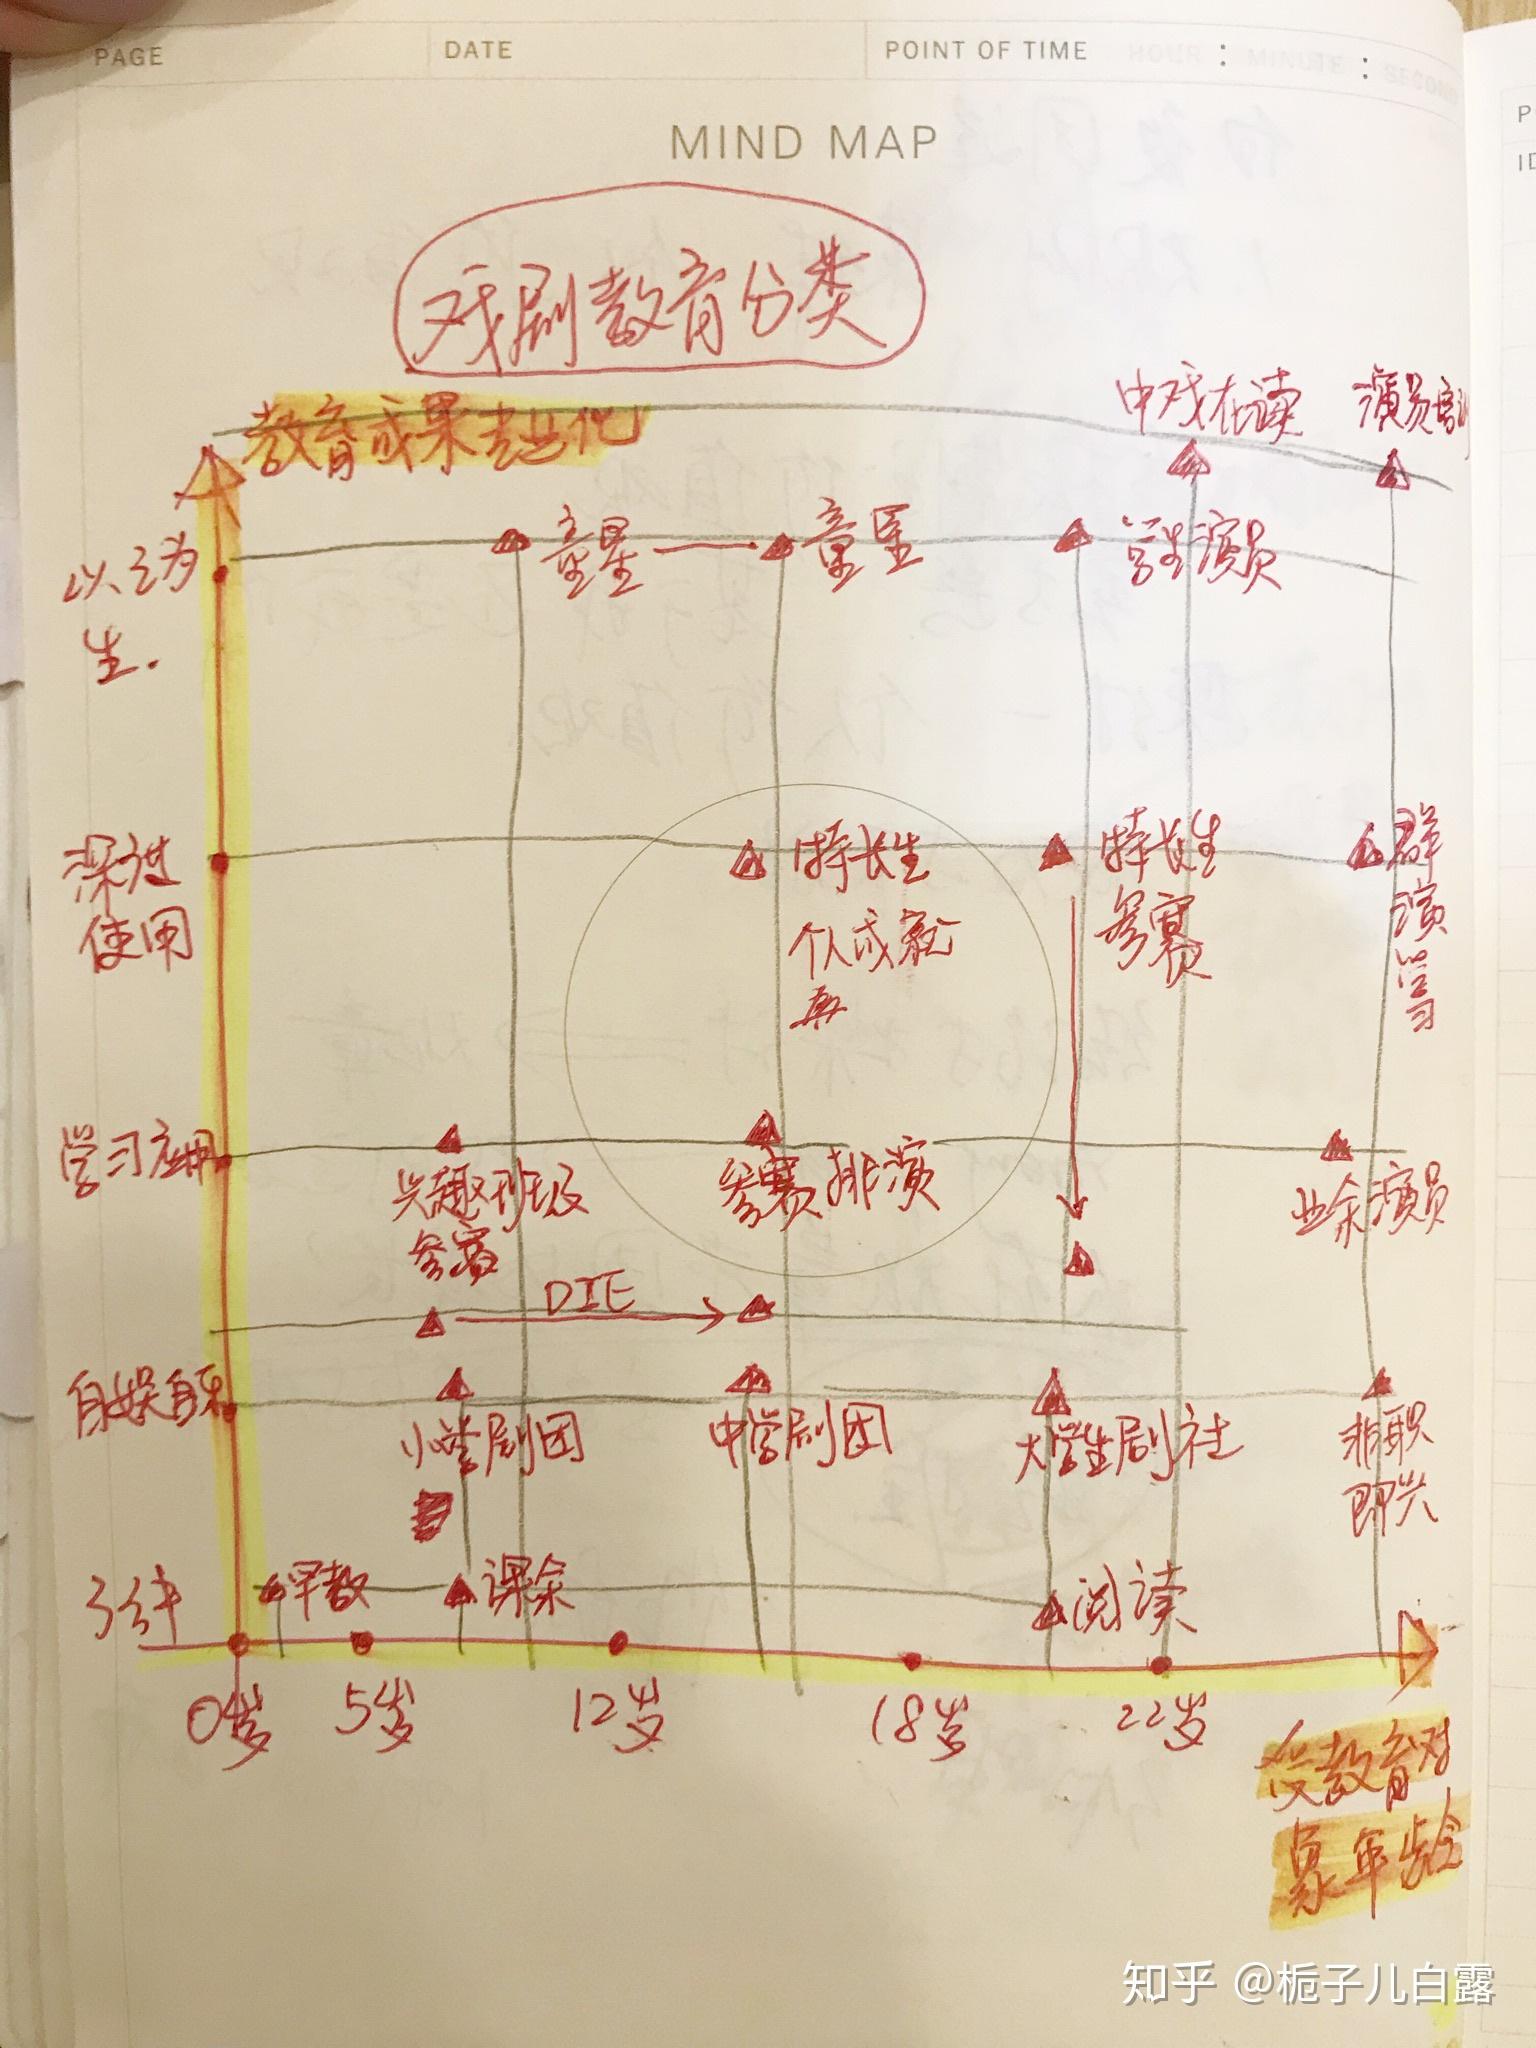 PAGE
DATE
POINT OF TIME HOUR : MINUTE : SECOND
MIND MAP
戏剧教育分类
中戏在读
演员培训
教育成果专业化
以之为
生.
童星
童星
学生演员
深进
使用
特长生
个人成就
特长生
参赛
群
演
学
习
学习应用
兴趣班级
参赛
参赛排演
业余演员
DIE
自娱自乐
小学剧团
中学剧团
大学生剧社
非职
即兴
了解
早教
课余
阅读
0岁
5岁
12岁
18岁
22岁
受教育对
象年龄
知乎 @栀子儿白露